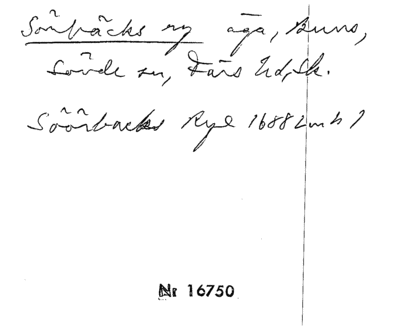 Sönbäcks ry äga, Buns,
Sövde sn, Färs hd, Sk.
Söörbacks Ryd 1688 Lmh 1
Nr 16750